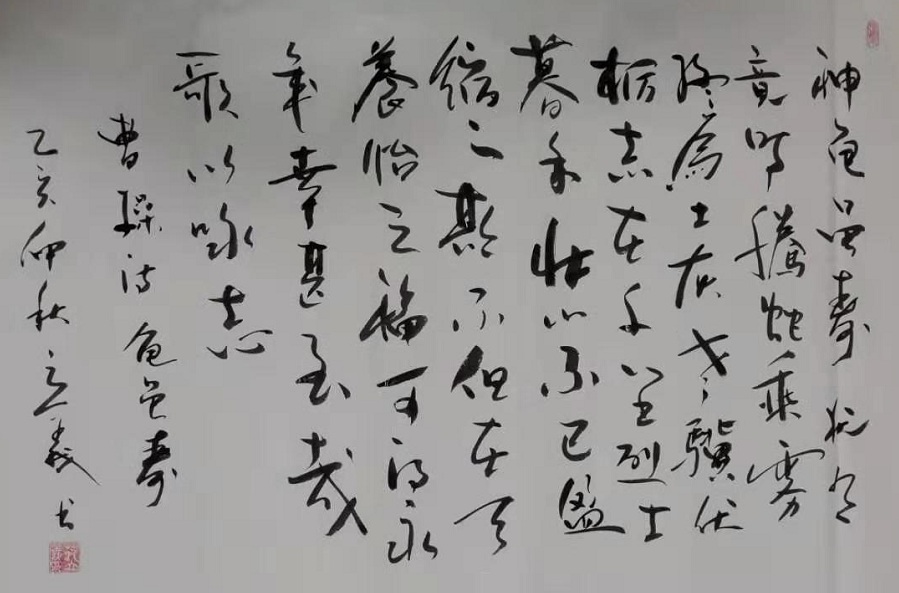 神龟虽壽犹有
竟时騰蛇乘雾
终為土灰老驥伏
枥志在千里烈士
暮年壮心不已盈
缩之期不但在天
養怡之福可得永
年幸甚至哉
歌以咏志
曹操诗龟虽壽
乙亥仲秋立義书